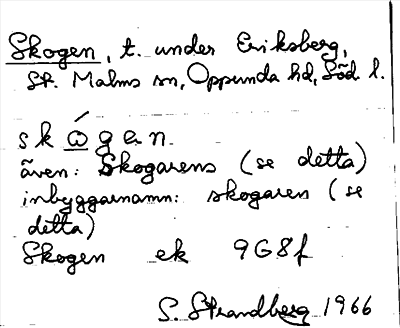 Skogen, t. under Eriksberg,
St. Malms sn, Oppunda hd, Söd. l.
skógen.
även: Skogarens (se detta)
inbyggarnamn: skogaren (se
detta)
Skogen ek 9G8f
S. Strandberg 1966